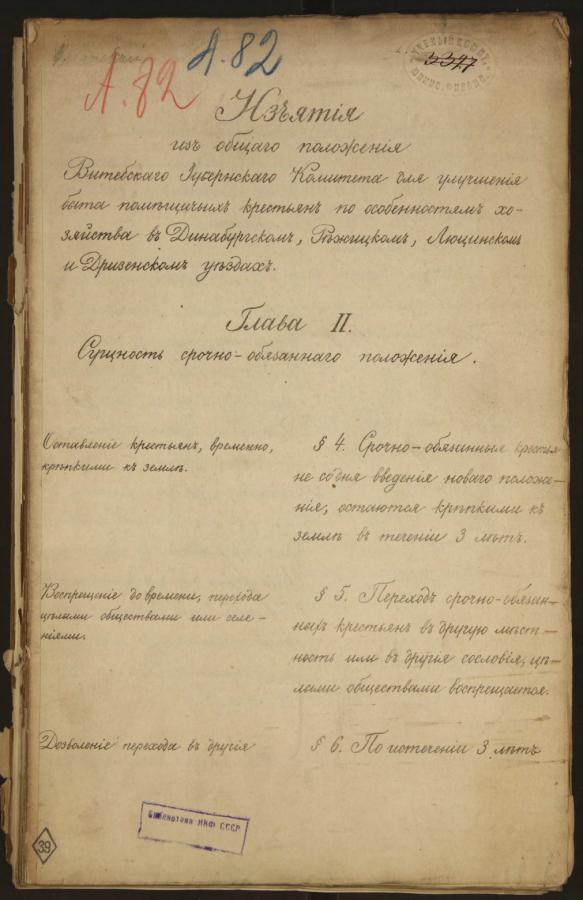 А.82
А.82
УЧЕНЫЙ КОМ.
3397
Изъятія
изъ общаго положенія
Витебскаго Губернскаго Комитета для улучшенія
быта помѣщичьихъ крестьянъ по особенностямъ хо-
зяйства въ Динабургскомъ, Рѣжицкомъ, Люцинскомъ
и Дризенскомъ уѣздахъ.
Глава II.
Сущность срочно-обязаннаго положенія.
Оставленіе крестьян, временно,
крѣпкими къ землѣ.
§ 4. Срочно-обязанныя крестья-
не со дня введенія новаго положе-
нія, остаются крѣпкими къ
землѣ въ теченіи 3 лѣтъ.
Воспрещеніе до времени, перехода
цѣлыми обществами или селе-
ніями.
§ 5. Переходъ срочно-обязан-
ныхъ крестьянъ въ другую мѣст-
ность или въ другія сословія, цѣ-
лыми обществами воспрещается.
Дозволеніе перехода въ другія
§ 6. По истеченіи 3 лѣтъ
Библиотека НКФ СССР
39